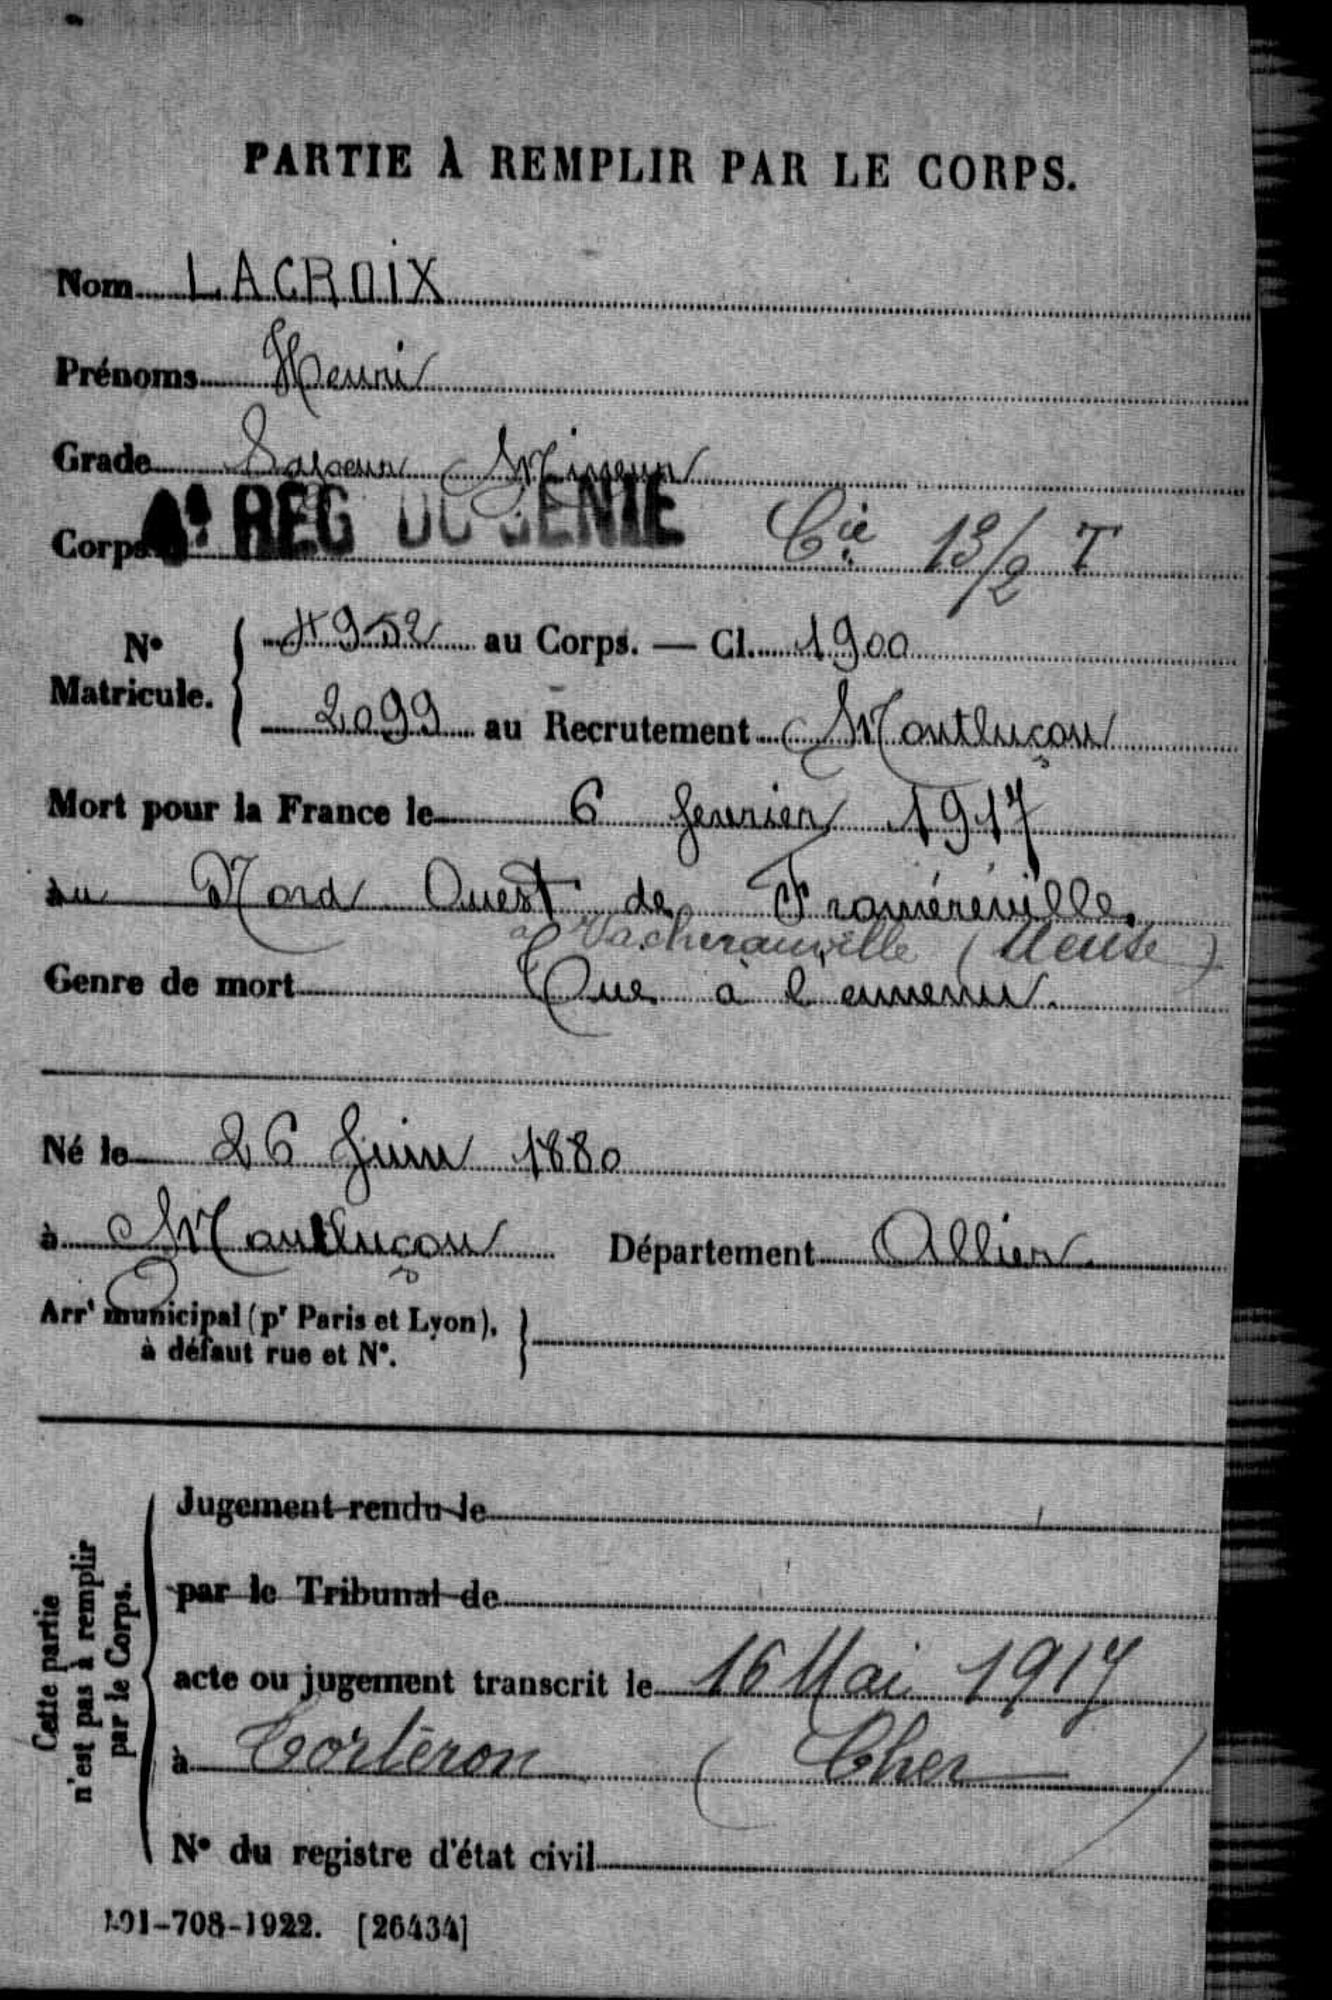 PARTIE À REMPLIR PAR LE CORPS.
Nom LACROIX
Prénoms Henri
Grade Sapeur Mineur
Corps 4e REG DU GENIE Cie 13/2 T
No Matricule. { 4952 au Corps. — Cl. 1900
2099 au Recrutement Montluçon
Mort pour la France le 6 fevrier 1917
au Nord Ouest de Froméréville.
à Vacherauville (Meuse)
Genre de mort Tué à l'ennemi.
Né le 26 Juin 1880
à Montluçon Département Allier.
Arrt municipal (pr Paris et Lyon),
à défaut rue et No. }
Cette partie
n'est pas à remplir
par le Corps.
Jugement rendu le
par le Tribunal de
acte ou jugement transcrit le 16 Mai 1917
à Cortéron (Cher)
No du registre d'état civil
101-708-1922. [26434]